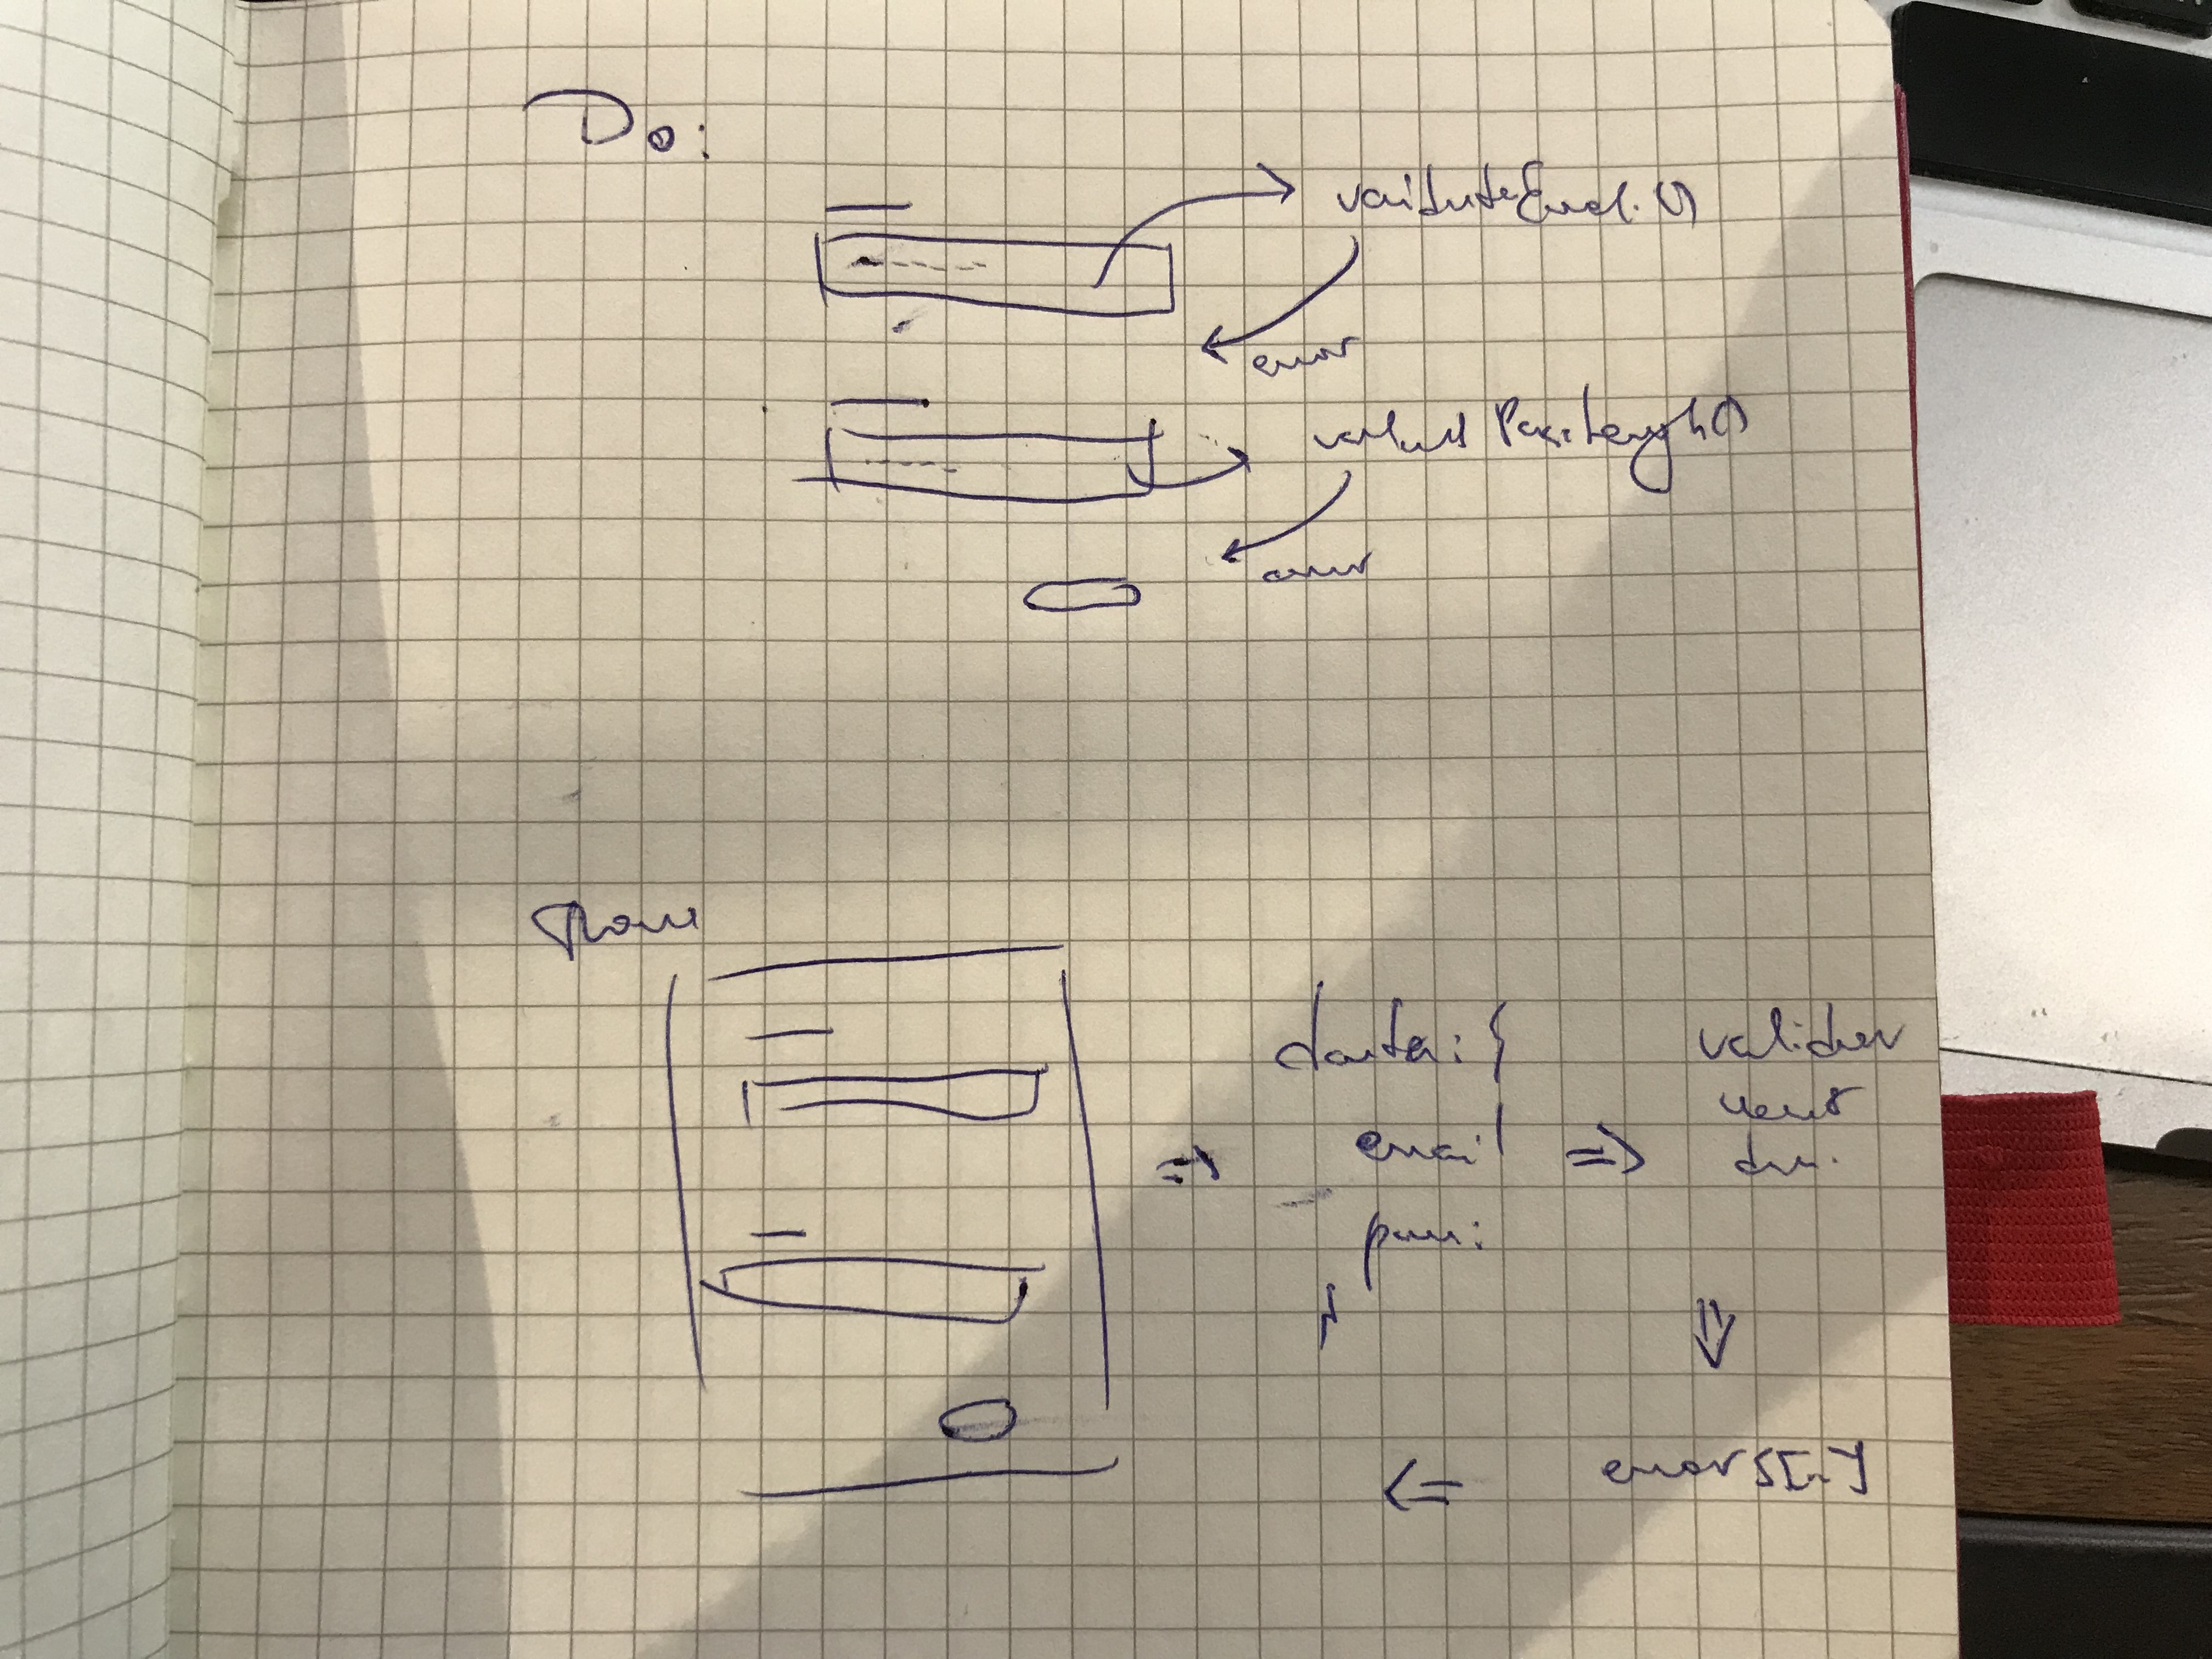 Do:
validateEmail()
error
validatePassLength()
error
После
data: {
email
pass:
}
error s[...]